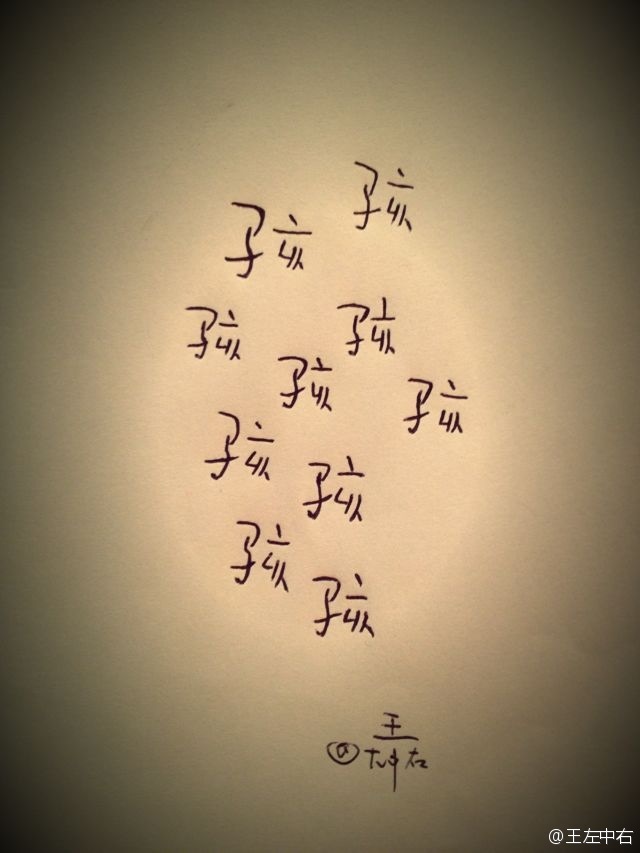 孩
孩
孩
孩
孩
孩
孩
孩
孩
孩
@王左中右
@王左中右